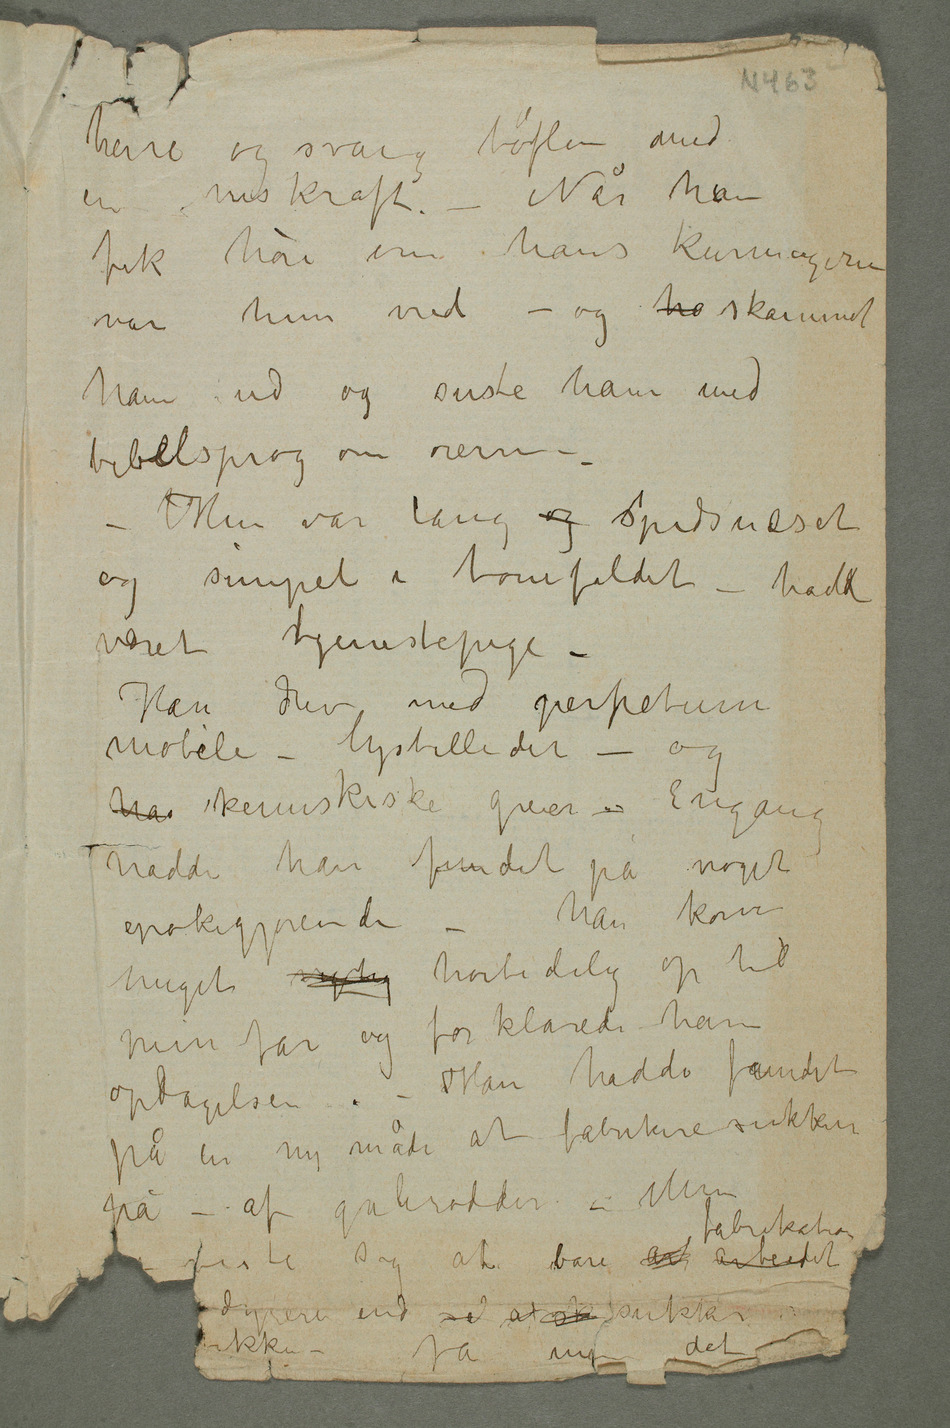 N463
herre og svang tøflen med
en  kraft. – Når han
fik høre om hans kurmageri
var hun vred – og ha skammet
ham ud og suste ham med
bibelsprog om ørerne –
– Hun var lang og spidsnæset
og simpel i tonefaldet – hadde
været tjenestepige –
Han drev med perpetum
mobile – lysbilleder – og
has kemiskiske greier – Engang
hadde han fundet på noget
epokegjørende – han kom
meget hastig høitidelig op til
min far og forklarede ham
opdagelsen. – Han hadde fundet
på en ny måde at fabrikere sukker
på – af gulerødder – Men
fabrikation
viste sig at være at arbeidet
dyrere end sukker
ikke – Ja det